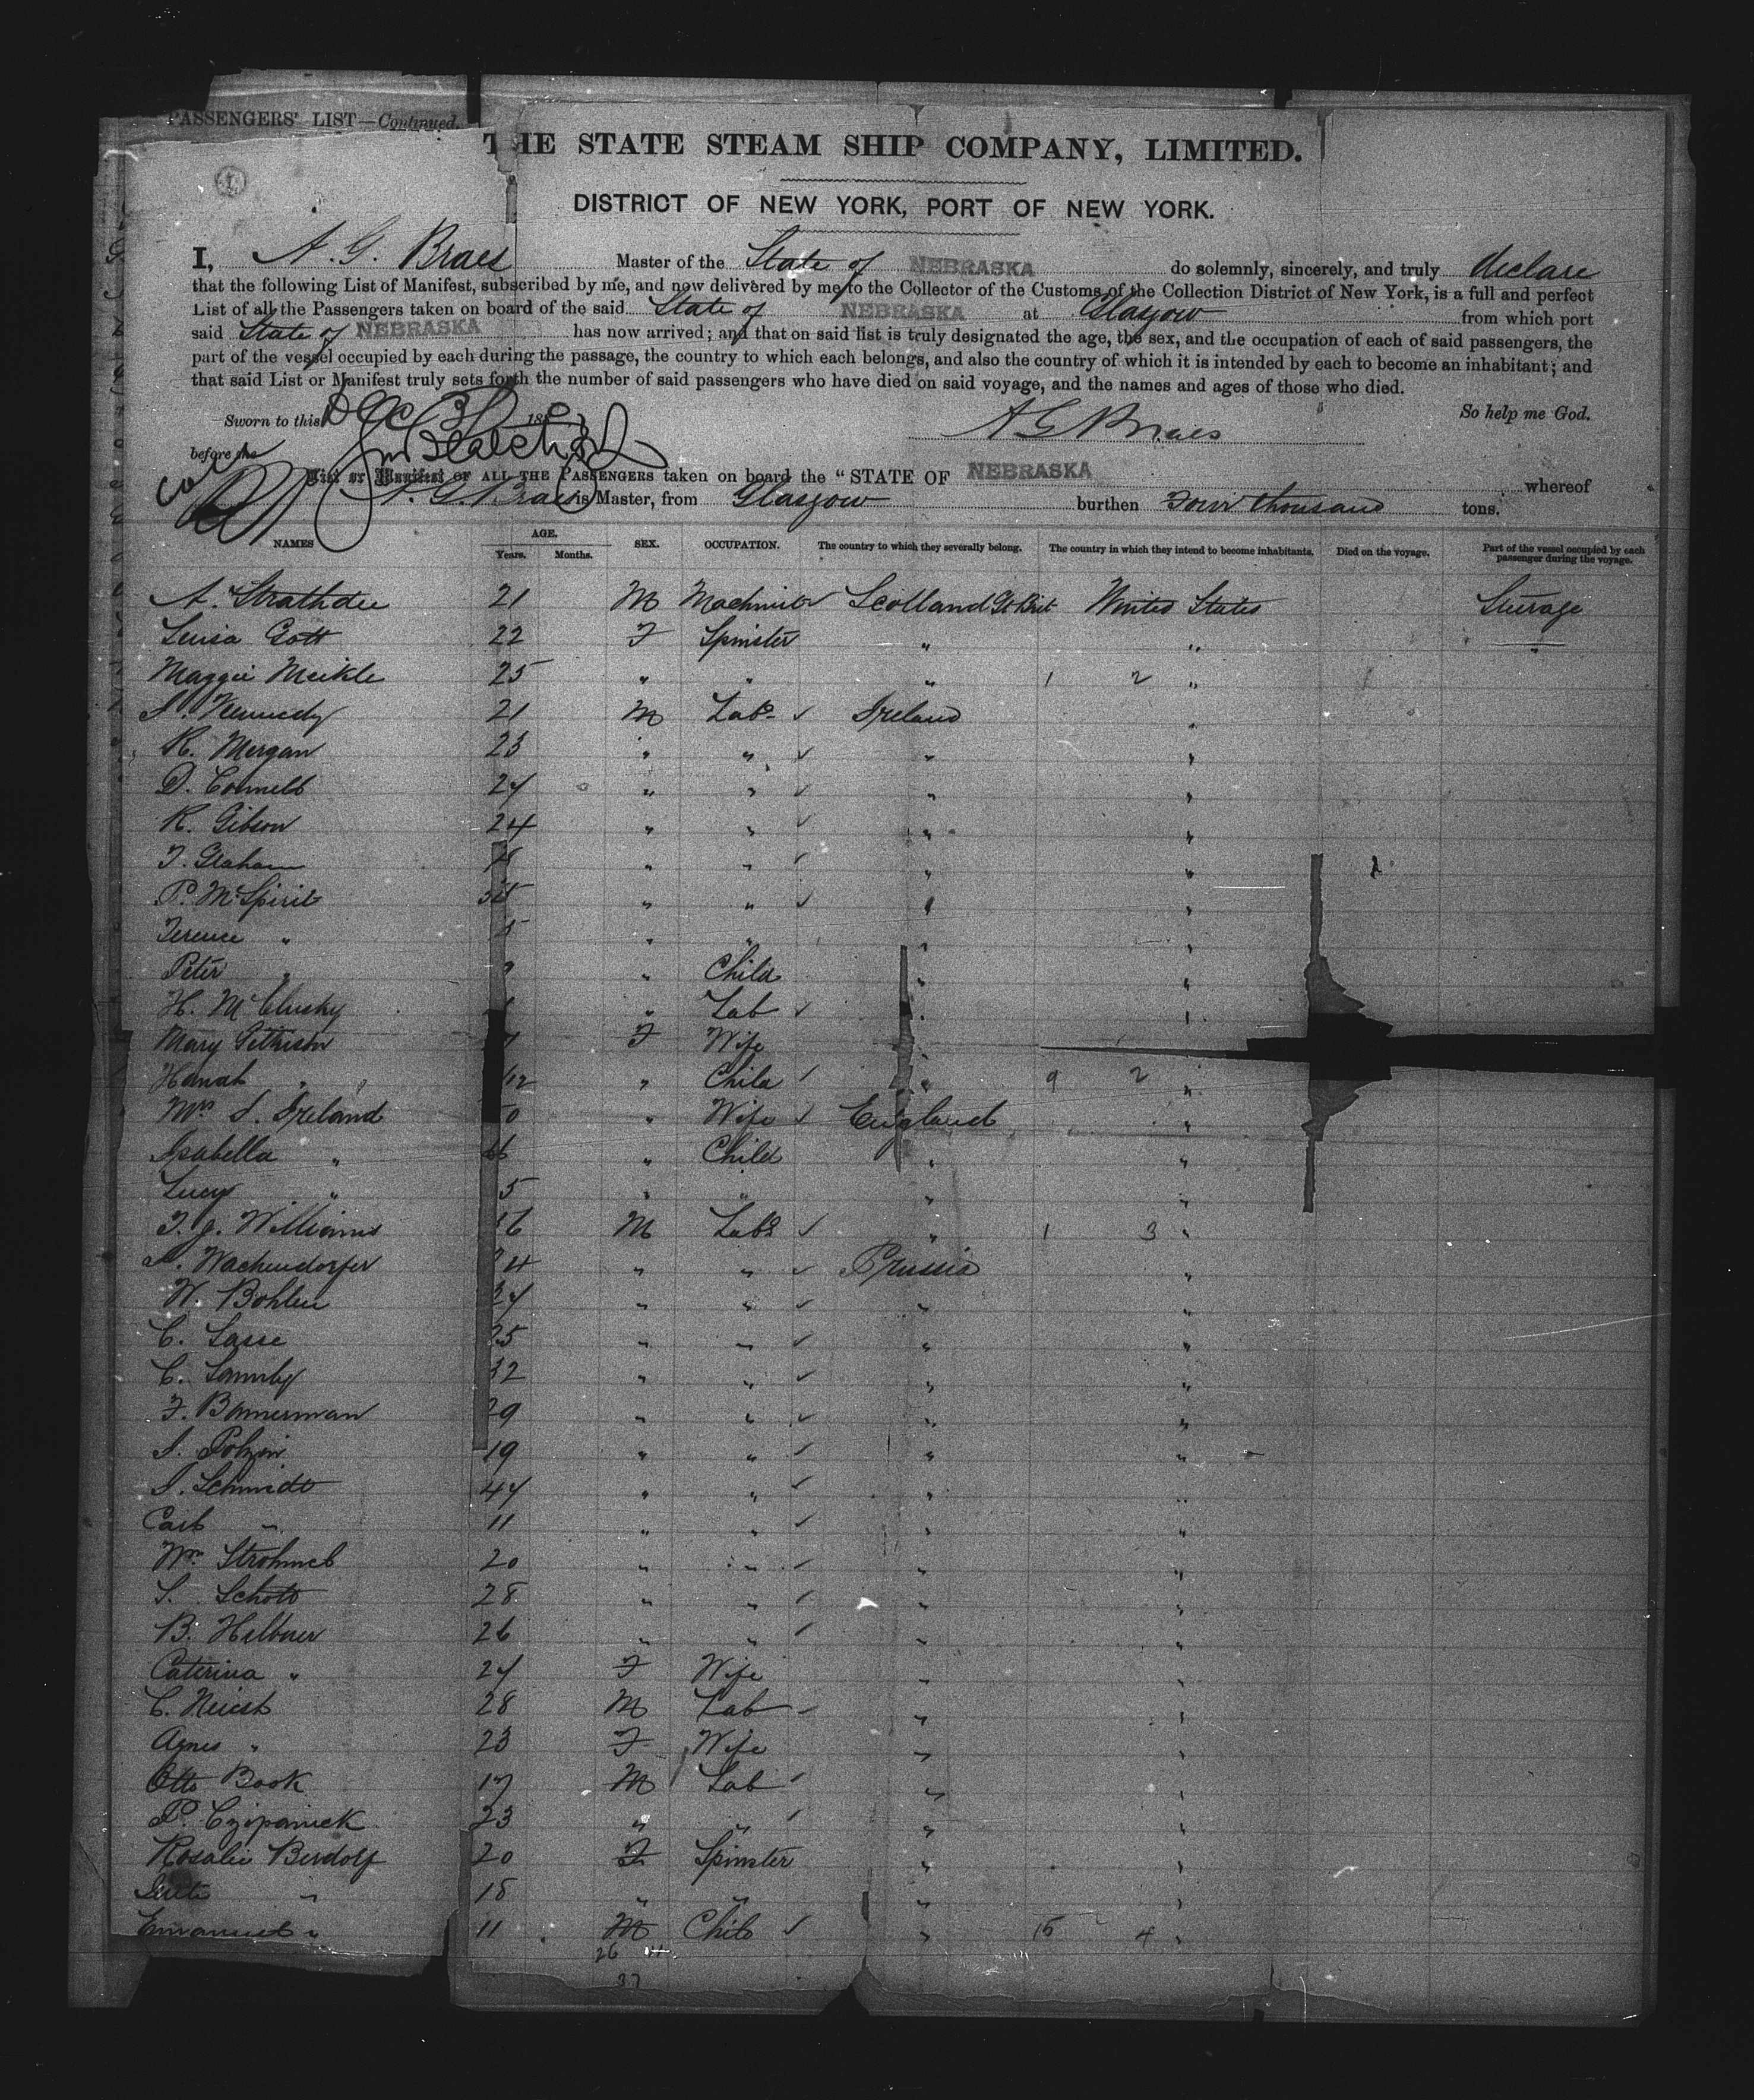 PASSENGERS' LIST—Continued.
THE STATE STEAM SHIP COMPANY, LIMITED.
DISTRICT OF NEW YORK, PORT OF NEW YORK.
I, A. G. Braes Master of the State of NEBRASKA do solemnly, sincerely, and truly declare
that the following List of Manifest, subscribed by me, and now delivered by me to the Collector of the Customs of the Collection District of New York, is a full and perfect
List of all the Passengers taken on board of the said State of NEBRASKA at Glasgow from which port
said State of NEBRASKA has now arrived; and that on said list is truly designated the age, the sex, and the occupation of each of said passengers, the
part of the vessel occupied by each during the passage, the country to which each belongs, and also the country of which it is intended by each to become an inhabitant; and
that said List or Manifest truly sets forth the number of said passengers who have died on said voyage, and the names and ages of those who died.
Sworn to this Dec 31 188 So help me God.
A G Braes
before me
List or Manifest OF ALL THE PASSENGERS taken on board the "STATE OF NEBRASKA whereof
A. G. Braes is Master, from Glasgow burthen Four thousand tons.
NAMES AGE. Years. Months. SEX. OCCUPATION. The country to which they severally belong. The country in which they intend to become inhabitants. Died on the voyage. Part of the vessel occupied by each passenger during the voyage.
A. Strathdee 21 M Machinist Scotland Gt Brit United States Steerage
Louisa Gott 22 F Spinster " " "
Maggie Meikle 25 " " " 1 2 "
J. Kennedy 21 M Labr ✓ Ireland "
R. Morgan 23 " " ✓ " "
D. Connell 24 " " ✓ " "
R. Gibson 24 " " ✓ " "
T. Graham 18 " " ✓ " "
P. McSpirit " " ✓ " "
Terence " " " " "
Peter " " Child " "
H. McClusky " Lab ✓ " "
Mary F Wife " "
Hanah " " Child ✓ " 9 2 "
Mrs S. Ireland " Wife ✓ England "
Isabella " 6 " Child " "
Lucy " 5 " " " "
T. J. Williams 6 M Labr ✓ " 1 3 "
A. Wachendorfer 4 " " ✓ Prussia "
W. Bohlen 24 " " ✓ " "
C. Sasse 25 " " ✓ " "
C. 32 " " ✓ " "
F. Bannerman 29 " " ✓ " "
J. Polzin 19 " " ✓ " "
J. Schmidt 44 " " ✓ " "
Carl " 11 " " ✓ " "
Wm Strohmel 20 " " ✓ " "
S. Schott 28 " " ✓ " "
B. Halbner 26 " " ✓ " "
Caterina " 24 F Wife " "
C. 28 M Lab ✓ " "
Agnes " 23 F Wife " "
Otto Book 17 M Lab ✓ " "
P. Czipanick 23 " " ✓ " "
Rosalie Berdorf 20 F Spinster " "
" 18 " " " "
Emanuel " 11 M Child ✓ " 15 4 "
26 11
37